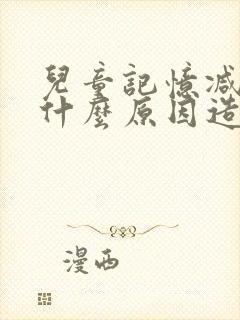 兒童記憶減
什麼原因造
漫西